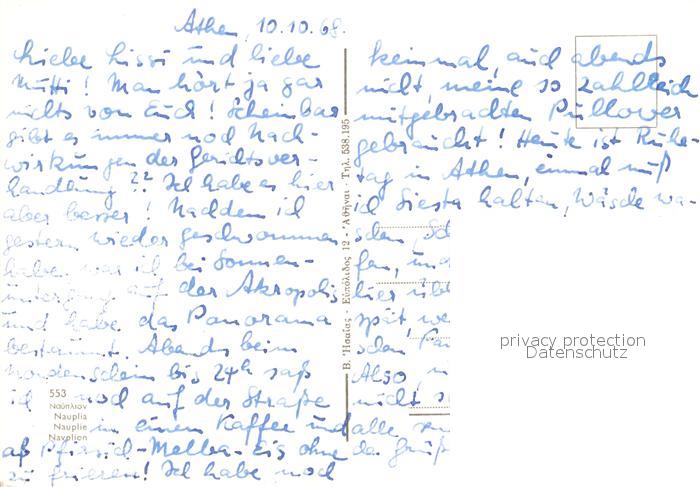 Athen, 10.10.68.
Liebe Lissi und liebe
Mutti! Man hört ja gar
nichts von Euch! Scheinbar
gibt es immer noch Nach-
wirkungen der Gerichtsver-
handlung?? Ich habe es hier
aber besser! Nachdem ich
gestern wieder geschwommen
habe, war ich bei Sonnen-
untergang auf der Akropolis
und habe das Panorama
bestaunt. Abends beim
Mondenschein bis 24h saß
ich noch auf der Straße
in einem Kaffee und
aß Pfirsich-Melba-Eis ohne
zu frieren! Ich habe noch
kein mal, auch abends
nicht, meine so zahlreich
mitgebrachten Pullover
gebraucht! Heute ist Ruhe-
tag in Athen, einmal muß
ich Siesta halten, Wäsche wa-
schen,
fen, und
hier übe
spät, we
schen
Also
nicht s
alle
da
553
Ναύπλιον
Nauplia
Nauplie
Navplion
Β. Ἡσαΐας - Εὐπόλιδος 12 - Ἀθῆναι - Τηλ. 538.195
privacy protection
Datenschutz